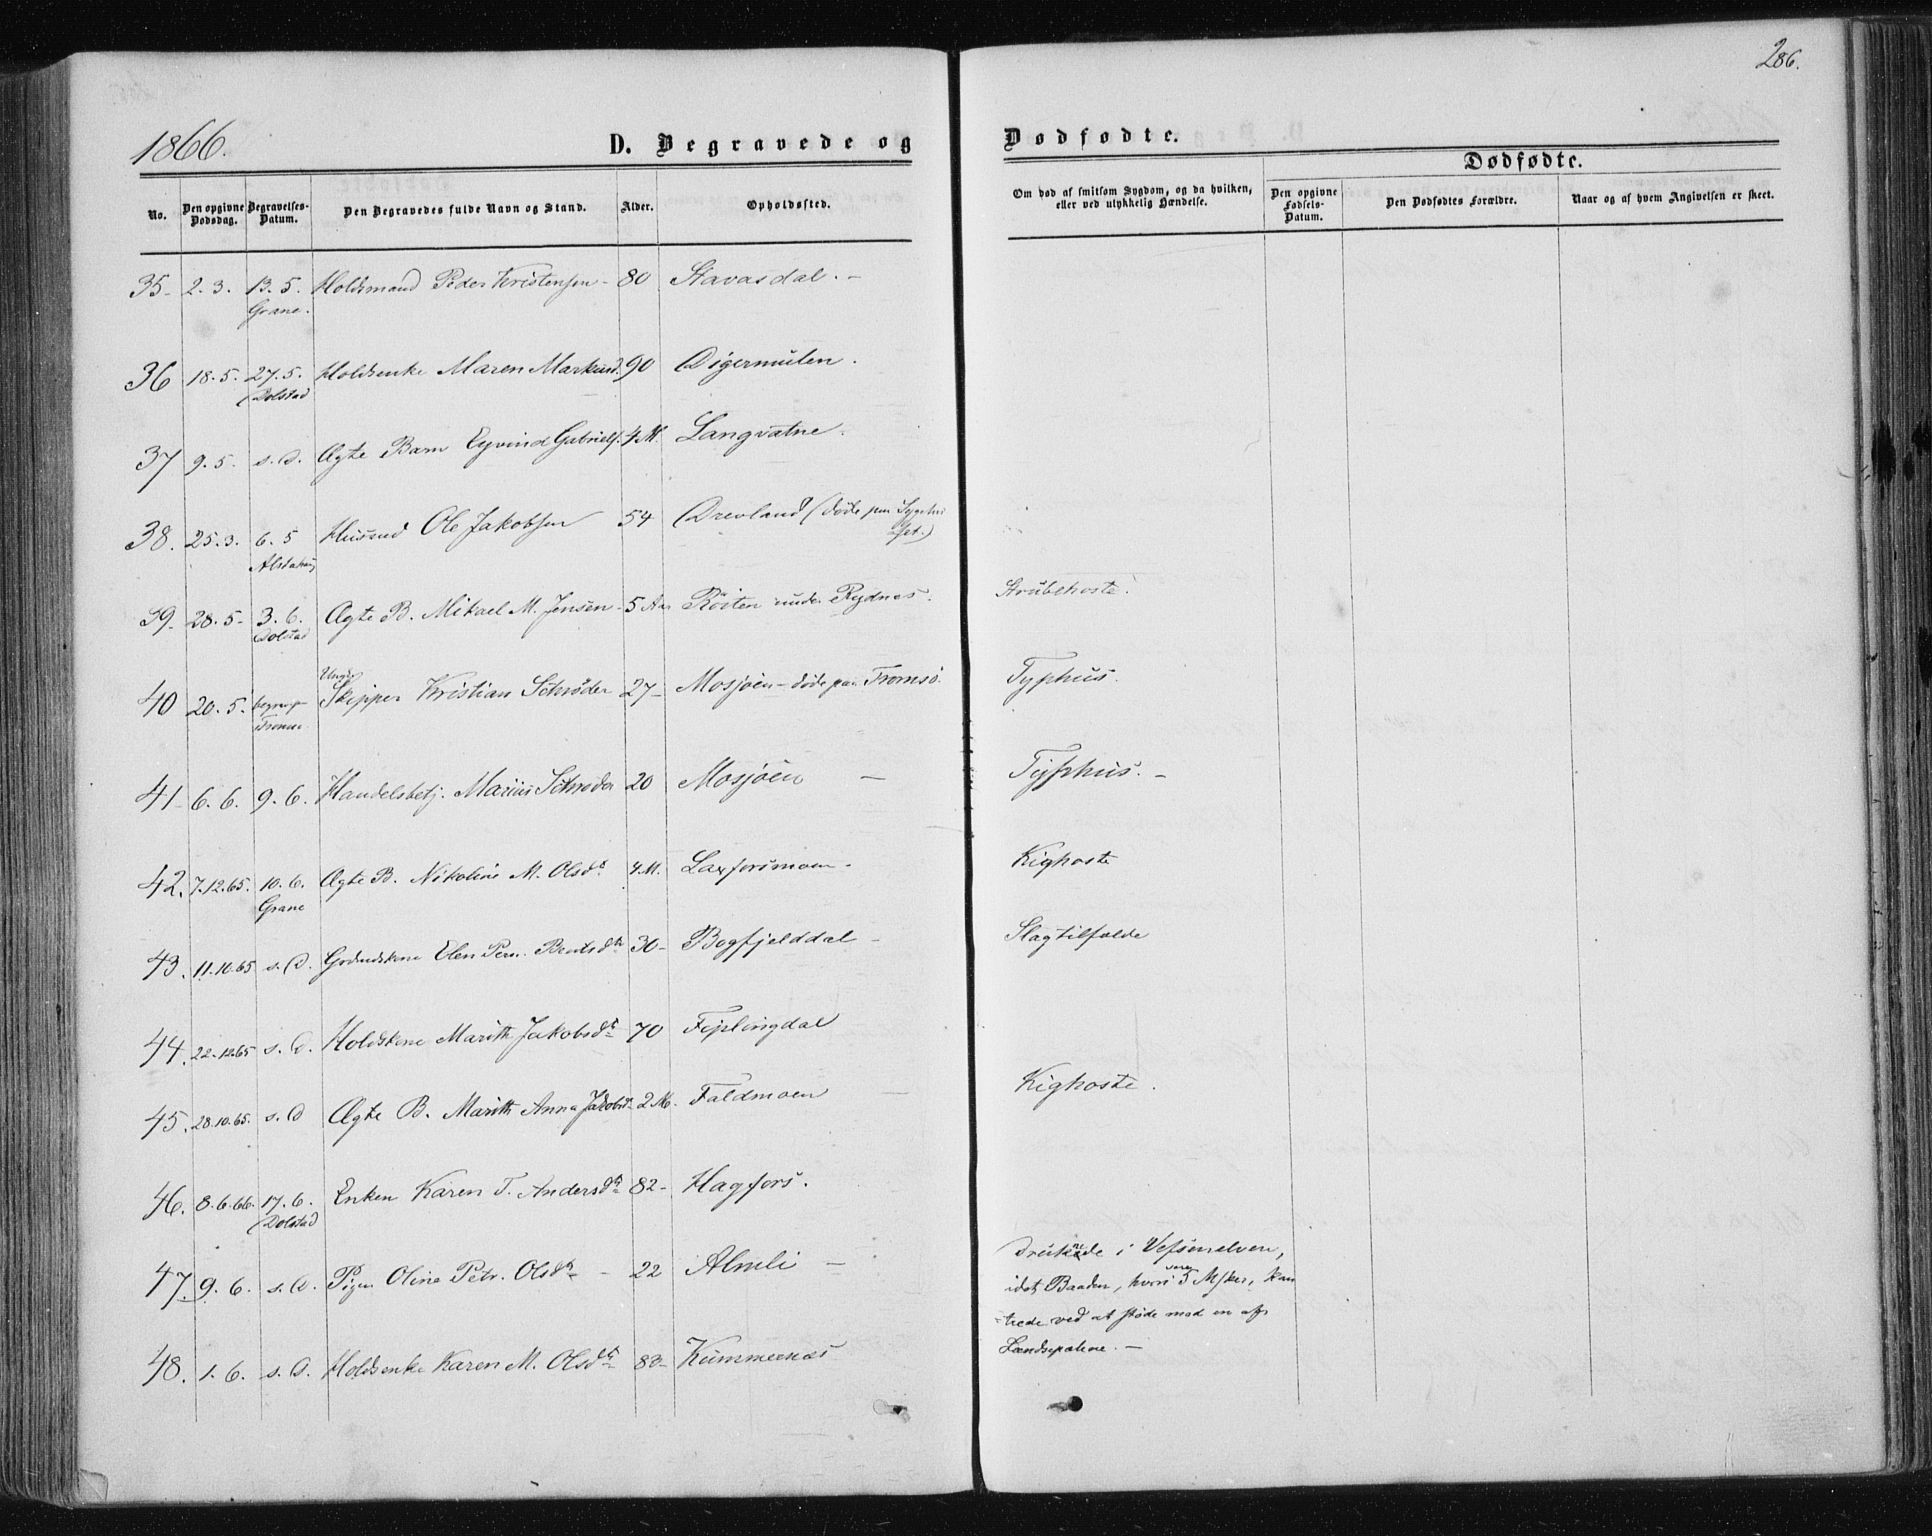 286.
1866.
D. Begravede og Dødfødte.
Dødfødte.
No.
Den opgivne Dødsdag.
Begravelses-Datum.
Den Begravedes fulde Navn og Stand.
Alder.
Opholdssted.
Om død af smitsom Sygdom, og da hvilken, eller ved ulykkelig Hændelse.
Den opgivne Fødsels-Datum.
Den Dødfødtes Forældre.
Naar og af hvem Angivelsen er skeet.
35 2.3. 13.5. Grane. Holdsmand Peder Kristensen 80 Stavasdal.
36 18.5. 27.5. Dolstad Holdsenke Maren Markusd. 90 Digermulen.
37 9.5. s. D. Ægte Barn Eyvind Gabriels. 4 M. Langvatne.
38. 25.3. 6.5 Alstahaug Ole Jakobsen 54 Drevland (døde paa
39. 28.5 3.6. Dolstad Ægte B. Mikael M. Jensen 5 Aar under Rydnes. Strubehoste.
40 20.5. Skipper Kristian Schrøder 27 Mosjøen - døde paa Tromsø. Typhus.
41 6.6. 9.6. Handelsbetj. Marius Schrøder 20 Mosjøen Typhus.
42. 7.12.65. 10.6. Grane Ægte B. Nikoline M. Olsdr 4 M. Laxforsmoen. Kighoste
43. 11.10.65 s. D. Elen 30 Bogfjelddal Slagtilfælde
44. 22.12.65 s. D. Holdskone Marith Jakobsdt 70 Fiplingdal
45. 28.10.65. s. D Ægte B. Marith Anna Jakobsd 2 M. Faldmoen Kighoste.
46. 8.6.66. 17.6. Dolstad Enken Karen T. Andersdtr 82 Hagfors.
47. 9.6. s. D. Pigen Oline Petr. Olsdtr 22 Almli druknede i Vefsenelven,
idet Baaden, hvori vare 5 Msker, kan
trede ved at støde mod en af
Landsepælene.
48. 1.6. s. D. Holdsenke Karen M. Olsdtr 83 Kummernæs